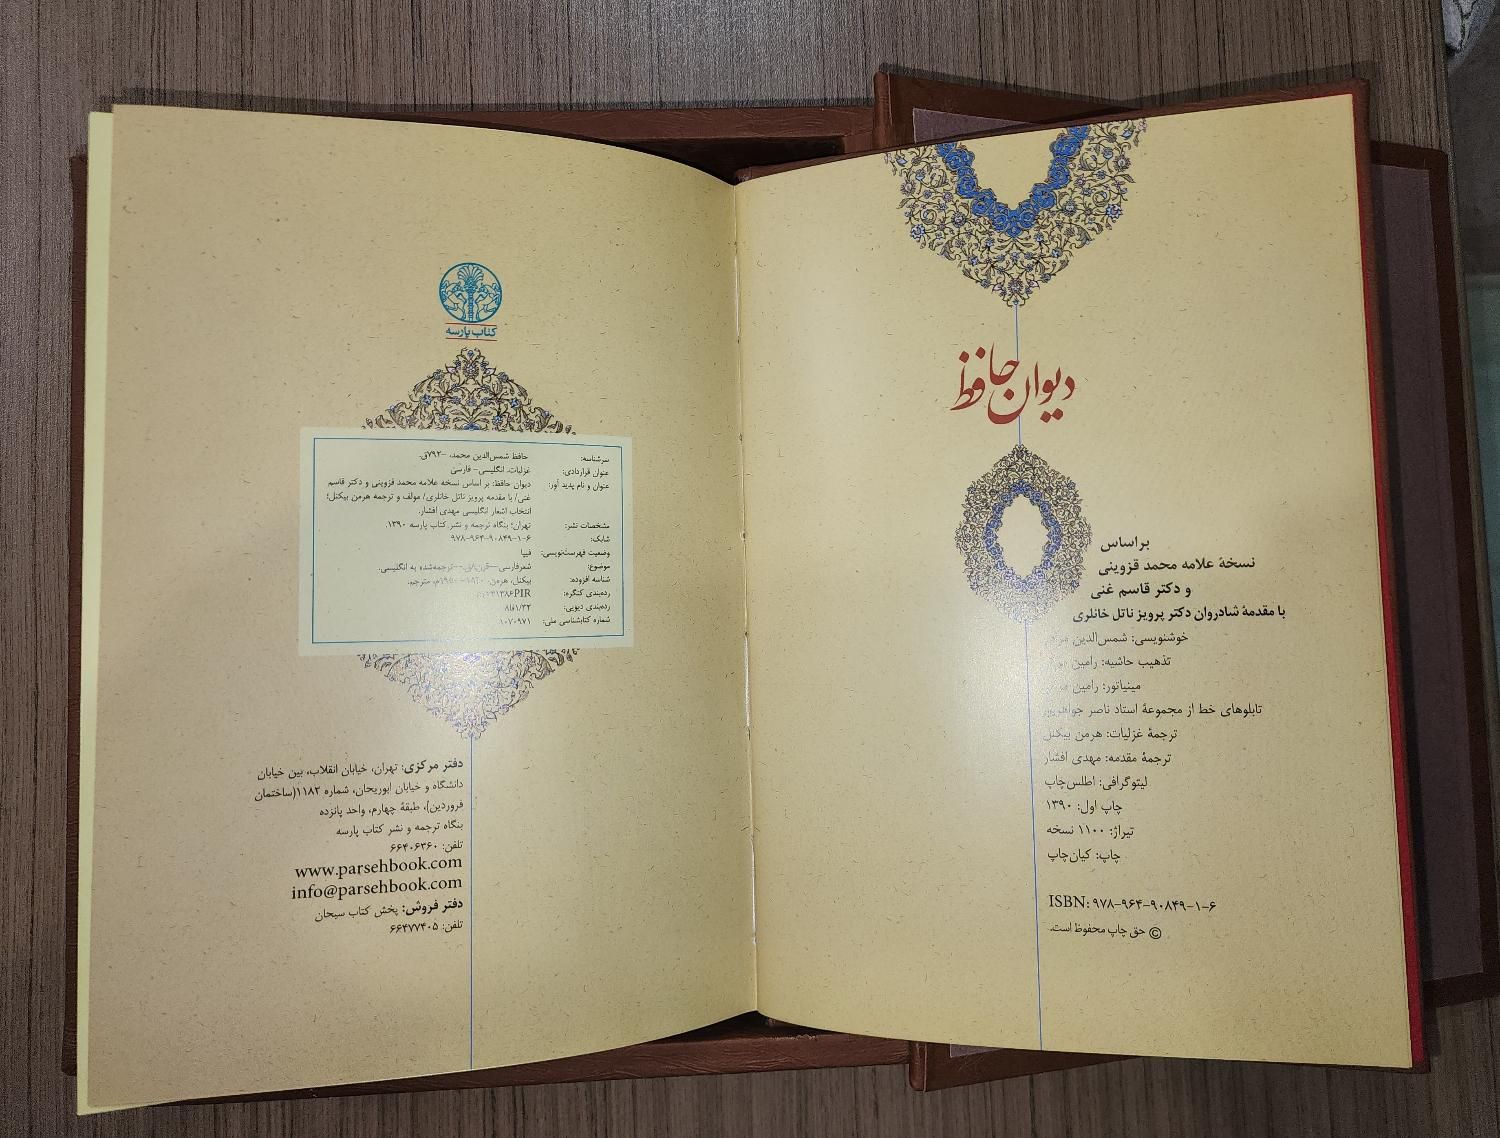 دیوان حافظ
براساس
نسخهٔ علامه محمد قزوینی
و دکتر قاسم غنی
با مقدمهٔ شادروان دکتر پرویز ناتل خانلری
خوشنویسی: شمس‌الدین
تذهیب حاشیه: رامین
مینیاتور: رامین
تابلوهای خط از مجموعهٔ استاد ناصر جواهرپور
ترجمهٔ غزلیات: هرمن بیکنل
ترجمهٔ مقدمه: مهدی افشار
لیتوگرافی: اطلس‌چاپ
چاپ اول: ۱۳۹۰
تیراژ: ۱۱۰۰ نسخه
چاپ: کیان‌چاپ
ISBN: ۹۷۸-۹۶۴-۹۰۸۴۹-۱-۶
© حق چاپ محفوظ است.
کتاب پارسه
سرشناسه: حافظ شمس‌الدین محمد، -۷۹۲ق.
عنوان قراردادی: غزلیات. انگلیسی- فارسی
عنوان و نام پدید آور: دیوان حافظ: بر اساس نسخه علامه محمد قزوینی و دکتر قاسم
غنی/ با مقدمه پرویز ناتل خانلری/ مولف و ترجمه هرمن بیکنل؛
انتخاب اشعار انگلیسی مهدی افشار.
مشخصات نشر: تهران؛ بنگاه ترجمه و نشر کتاب پارسه ۱۳۹۰.
شابک: ۹۷۸-۹۶۴-۹۰۸۴۹-۱-۶
وضعیت فهرست‌نویسی: فیپا
موضوع: شعرفارسی--قرن ق.--ترجمه‌شده به انگلیسی.
شناسه افزوده: بیکنل، هرمن. م، مترجم.
رده‌بندی کنگره: PIR
رده‌بندی دیویی: ۸فا۱/۳۲
شماره کتابشناسی ملی: ۱۰۷۰۹۷۱
دفتر مرکزی: تهران، خیابان انقلاب، بین خیابان
دانشگاه و خیابان ابوریحان، شماره ۱۱۸۲(ساختمان
فروردین)، طبقهٔ چهارم، واحد پانزده
بنگاه ترجمه و نشر کتاب پارسه
تلفن: ۶۶۴۰۶۳۶۰
www.parsehbook.com
info@parsehbook.com
دفتر فروش: پخش کتاب سیحان
تلفن: ۶۶۴۷۷۴۰۵